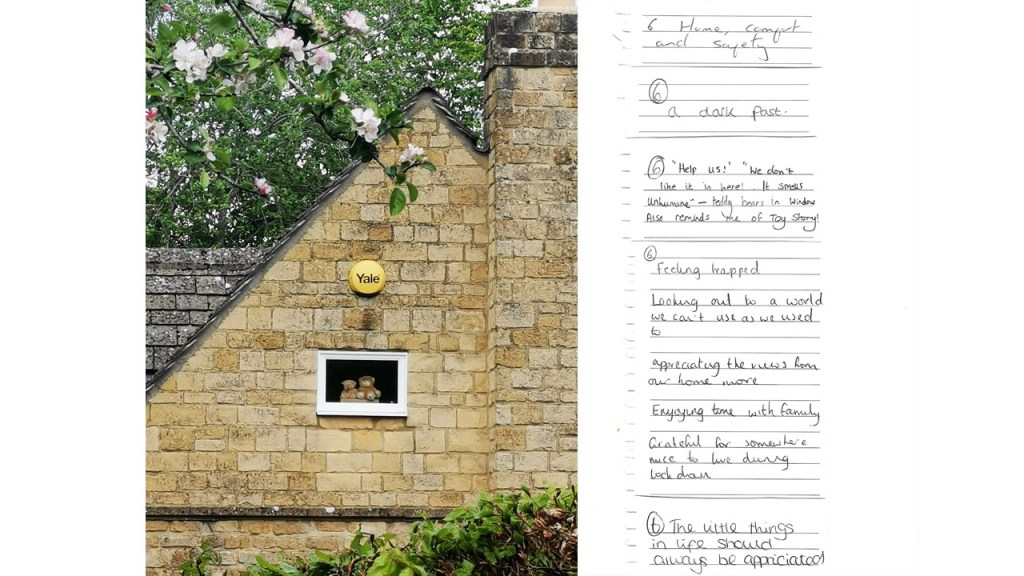 Yale
6 Home, comfort
and safety
6
a dark past.
6 "Help us!" "We don't
like it in here! It smells
Unhumane" – teddy bears in window
Also reminds me of Toy Story!
6
Feeling trapped
Looking out to a world
we can't use as we used
to
appreciating the views from
our home more
Enjoying time with family
Grateful for somewhere
nice to live during
lockdown
6 The little things
in life should
always be appriciated